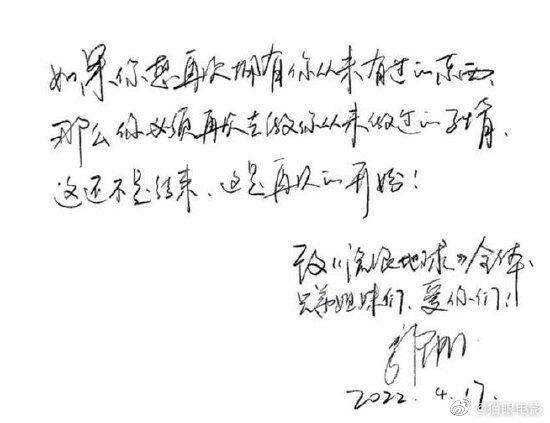 如果你想再次拥有你从未有过的东西、
那么你必须再次去做你从未做过的事情、
这还不是结束、这是再次的开始！
致《流浪地球》全体
兄弟姐妹们、爱你们！
2022.4.17.
@猫眼电影